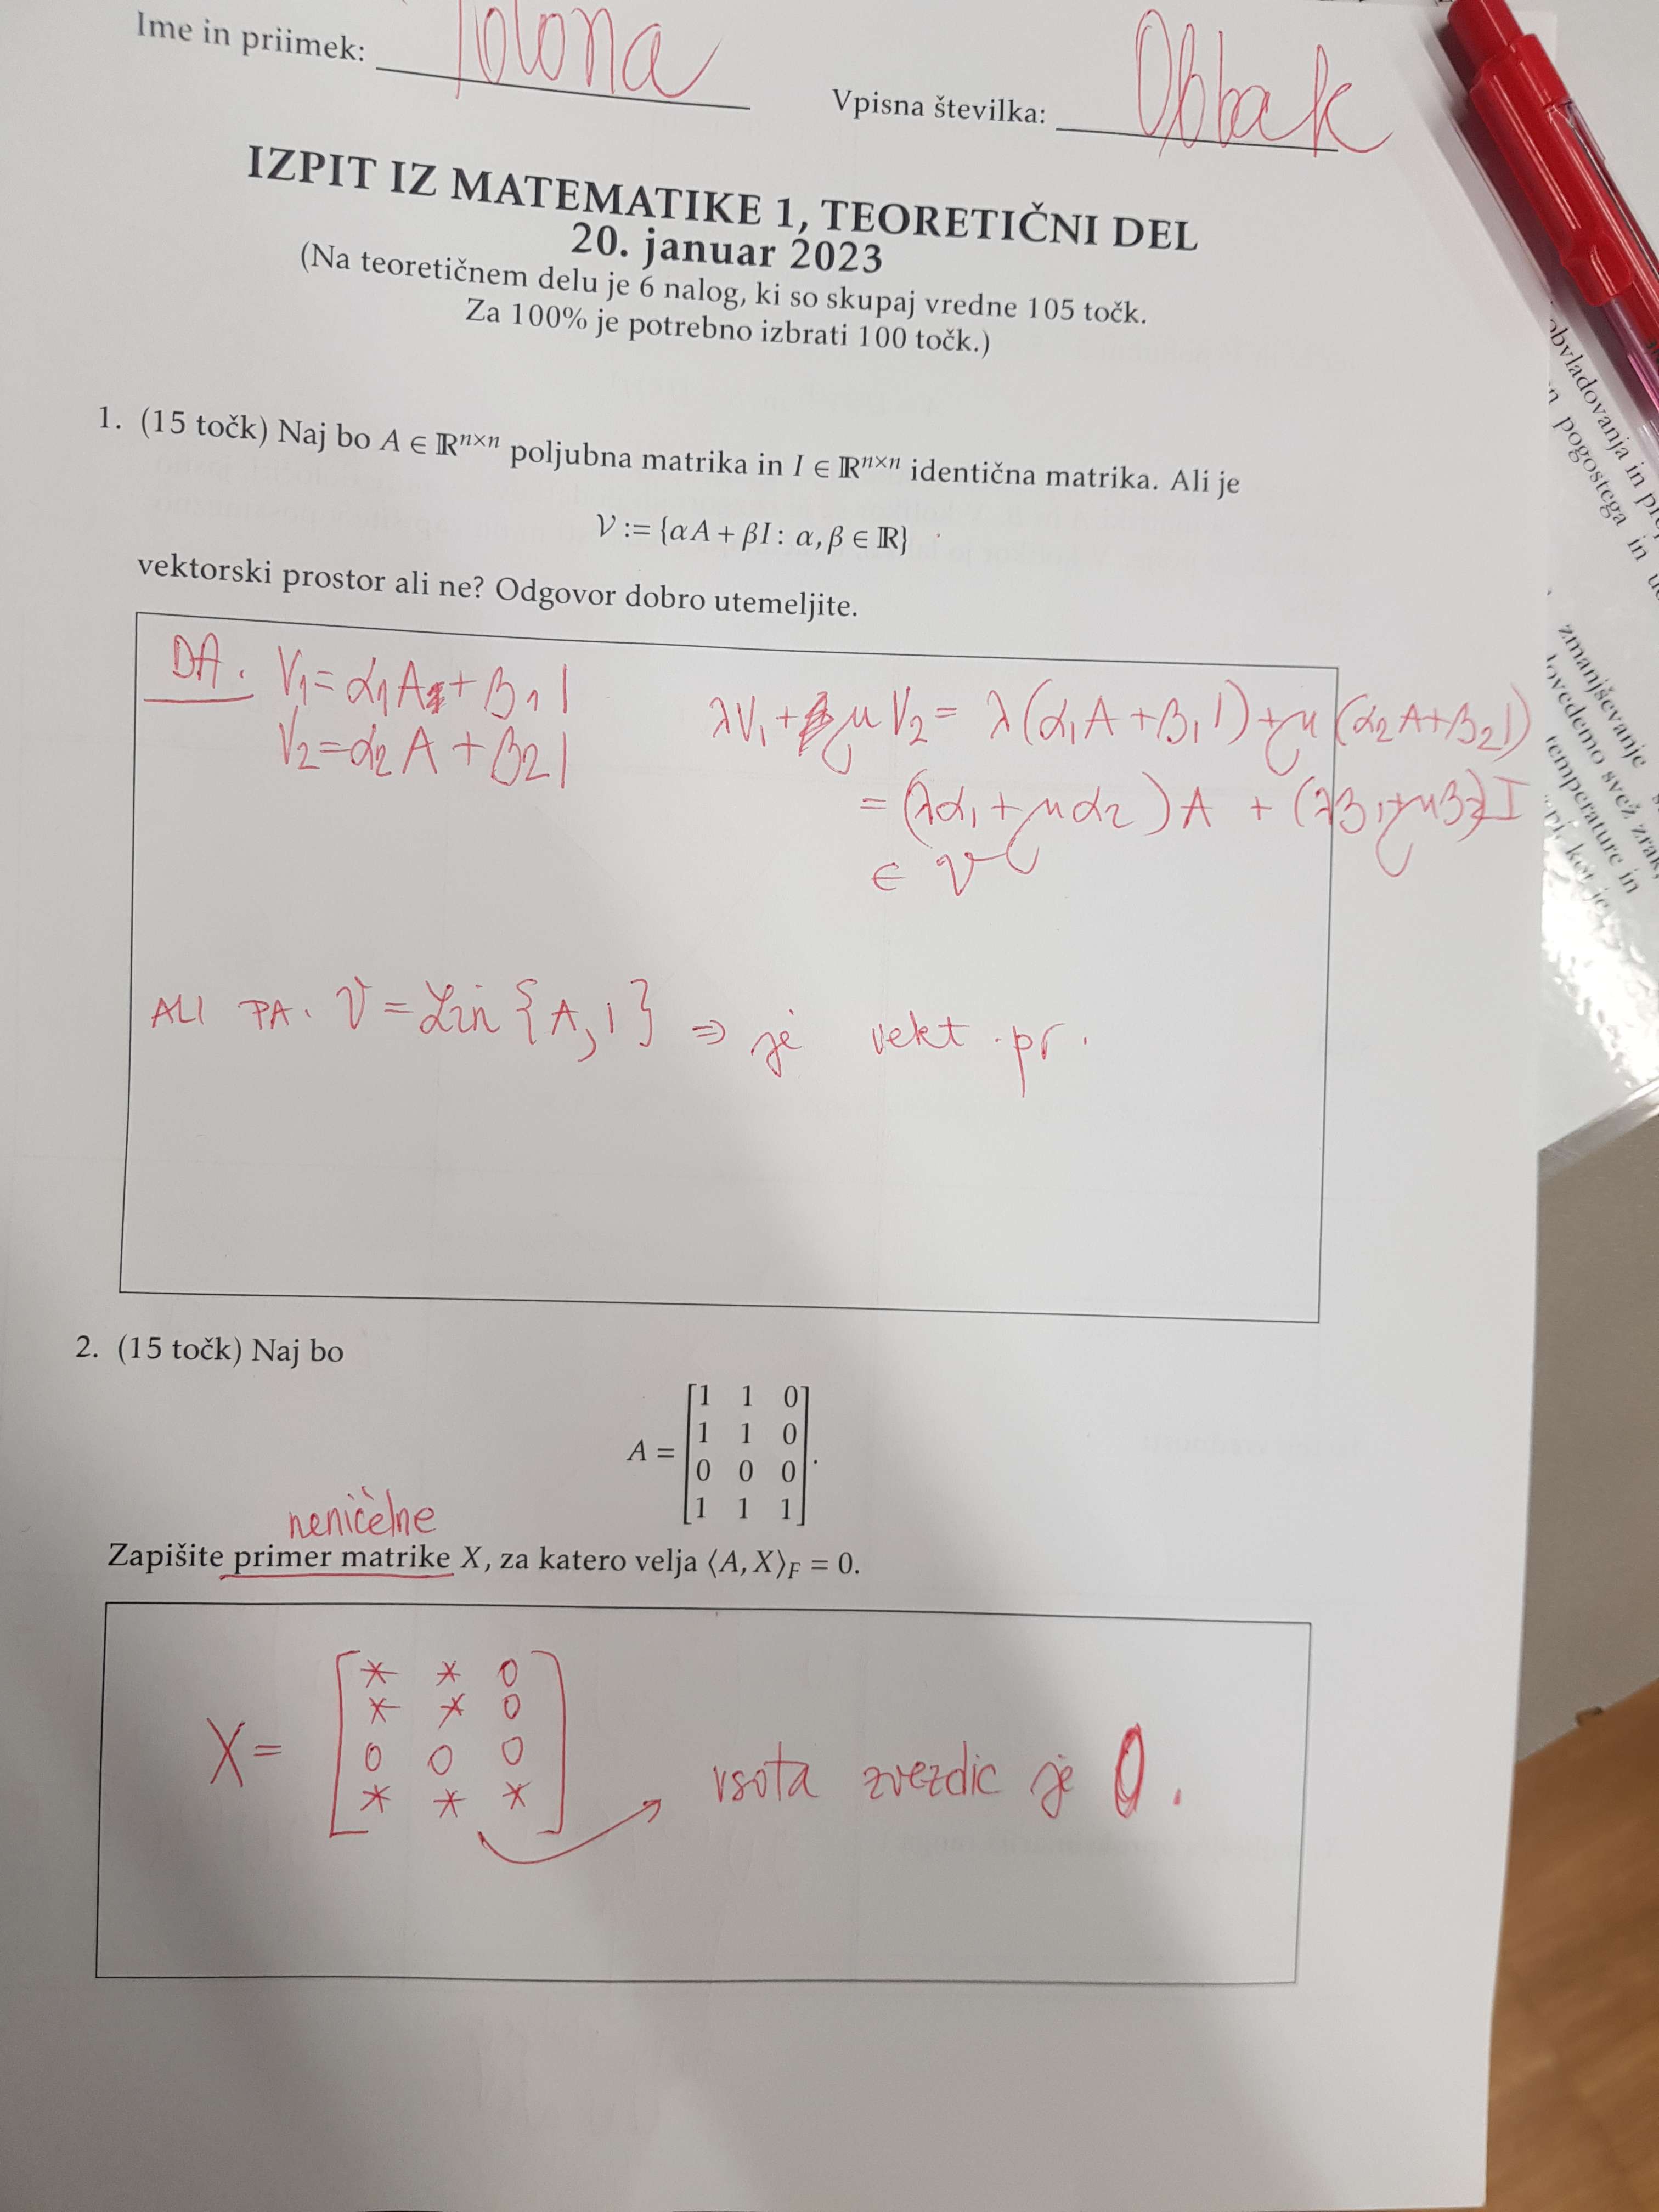 Ime in priimek: Polona
Vpisna številka: Oblak
IZPIT IZ MATEMATIKE 1, TEORETIČNI DEL
20. januar 2023
(Na teoretičnem delu je 6 nalog, ki so skupaj vredne 105 točk.
Za 100% je potrebno izbrati 100 točk.)
1. (15 točk) Naj bo A ∈ ℝⁿˣⁿ poljubna matrika in I ∈ ℝⁿˣⁿ identična matrika. Ali je
𝒱 := {αA + βI : α, β ∈ ℝ}
vektorski prostor ali ne? Odgovor dobro utemeljite.
DA. V₁ = α₁A + β₁I
V₂ = α₂A + β₂I
λV₁ + μV₂ = λ(α₁A + β₁I) + μ(α₂A + β₂I)
= (λα₁ + μα₂)A + (λβ₁ + μβ₂)I
∈ 𝒱
ALI PA. 𝒱 = Lin {A, I} ⇒ je vekt. pr.
2. (15 točk) Naj bo
A = [1 1 0
1 1 0
0 0 0
1 1 1].
neničelne
Zapišite primer matrike X, za katero velja ⟨A, X⟩F = 0.
X = [* * 0
* * 0
0 0 0
* * *] → vsota zvezdic je 0.
obvladovanja in
pogostega in
zmanjševanje
dovedemo svež
temperature in
kot je